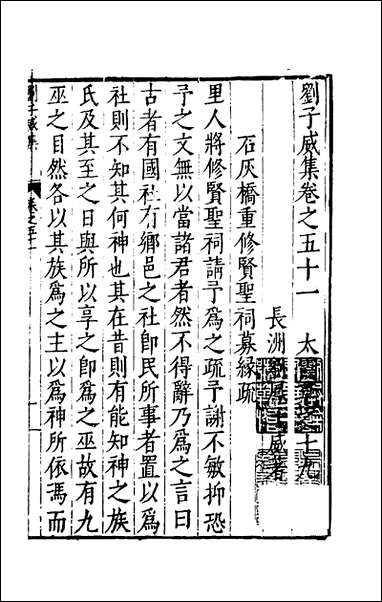 劉子威集卷之五十一 太
長洲劉鳳子威著
石灰橋重修賢聖祠募緣疏
里人將修賢聖祠請予為之疏予謝不敏抑恐
予之文無以當諸君者然不得辭乃為之言曰
古者有國社有鄉邑之社即民所事者置以為
社則不知其何神也其在昔則有能知神之族
氏及其至之日與所以享之即為之巫故有九
巫之目然各以其族為之主以為神所依馮而
劉子威集